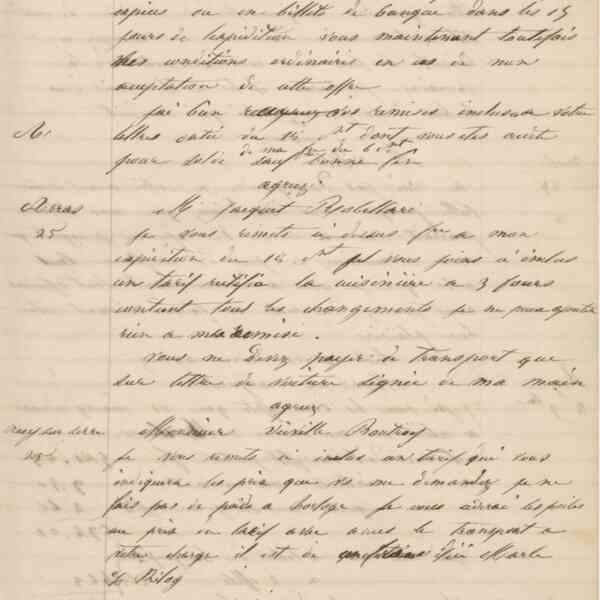 espèces ou en billets de banque dans les 15
jours de l'expédition vous maintenant toutefois
mes conditions ordinaires en cas de non
acceptation de cette offre
j'ai bien vos remises incluses votre
N.
lettre datée du 14 dont vous êtes crédité
de ma fre du 6 ct
pour solde sauf bonne fin
agréez
Arras
M Jacquart Rebattari
25
Je vous remets ci dessus fre a mon
expédition du 18 ct vous joins a inclus
un tarif rectifié la cuisinière a 3 fours
contient tous les changements je ne puis ajouter
rien a ma remise.
Vous ne devez payer de transport que
sur lettre de voiture signée de ma main
agréez
Crecy sur Serre
Monsieur Vieville Boutroy
25
Je vous remets ci inclus un tarif qui vous
indiquera les prix que vs me demandez je ne
fais pas de poële a horloge Je vous enverrai les poëles
au prix du tarif avec le transport a
votre charge il est de Marle